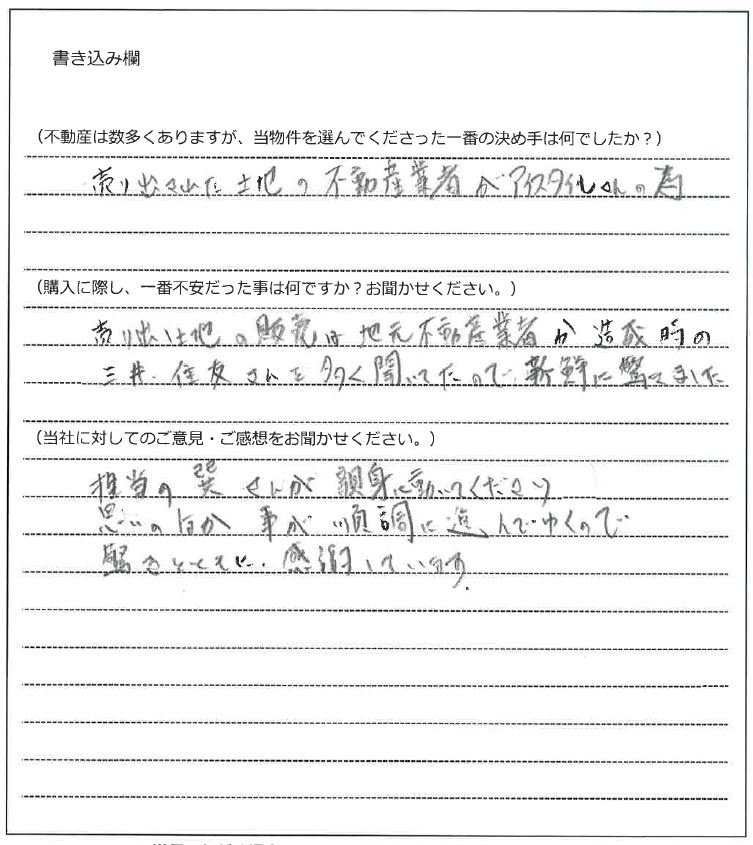 書き込み欄
（不動産は数多くありますが、当物件を選んでくださった一番の決め手は何でしたか？）
売り出された土地の不動産業者がアイスタイルさんの為
（購入に際し、一番不安だった事は何ですか？お聞かせください。）
売り出し土地の販売は地元不動産業者か造成時の
三井・住友さんを多く聞いてたので、新鮮に驚きました
（当社に対してのご意見・ご感想をお聞かせください。）
担当の巽さんが親身に動いてくださり
思いの外事が順調に進んでゆくので
驚きとともに、感謝しています。